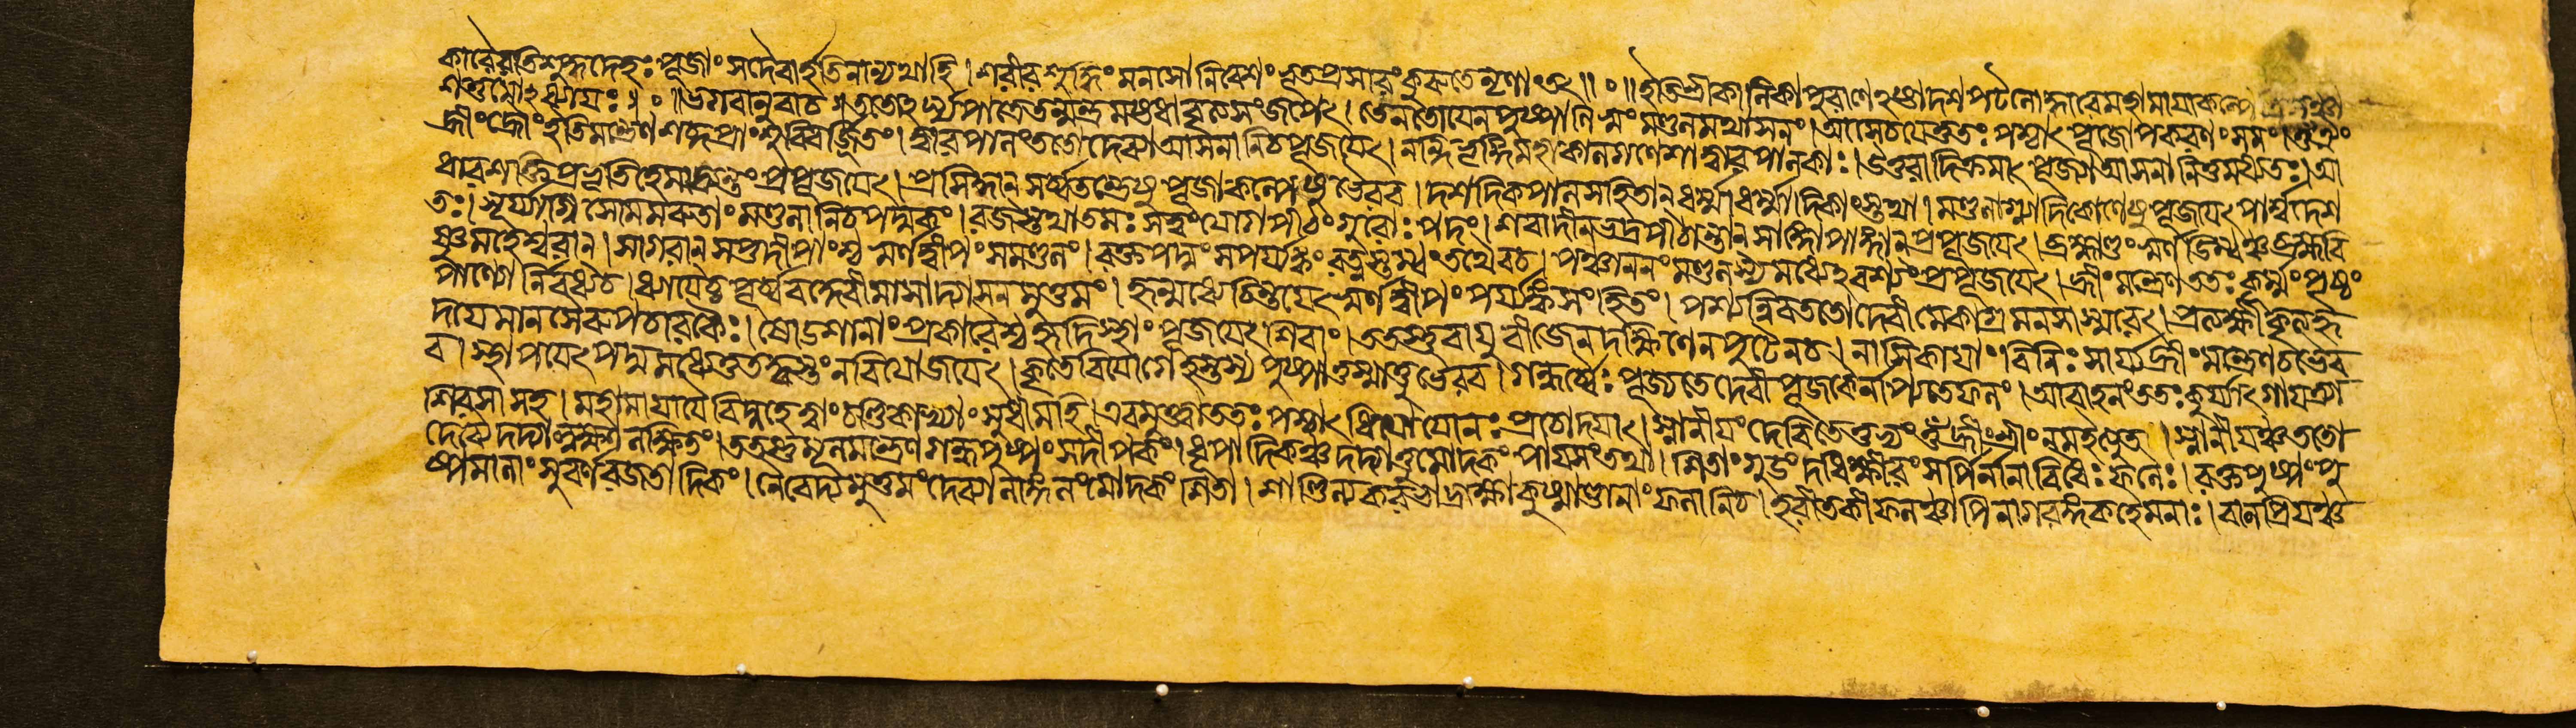 কারৈরতিশুদ্ধদেহঃ পূজাং সদৈবার্হতিনান্যথাহি। শরীরশুদ্ধিং মনসো নিবেশং ভূতপ্রসারং কুরুতে নৃণাং তৎ॥ ০॥ ইতি শ্রীকালিকাপুরাণে ঽষ্টাদশপটলোদ্ধারে মহামায়াকল্পে
ঽধ্যায়ঃ॥ ০॥ ভগবানুবাচ॥ ততোঽর্ঘ্যপাত্রে তন্মন্ত্রমষ্টধাকৃত্য সংজপেৎ। তেন তোয়েন পুষ্পাণি স্বং মণ্ডলমথাসনং। আসেচয়েত্ততঃ পশ্চাৎ পূজোপকরণং সমং। ওঁ ঐং
হ্রীং হ্রৌং ইতি মন্ত্রেণ শব্দপ্রাংশু বিবর্জ্জিতং। দ্বারপালং ততো দেব্যা আসনানি চ পূজয়েৎ। নন্দিভৃঙ্গিমহাকালগণেশা দ্বারপালকাঃ। উত্তরাদিক্রমাৎ পূজ্যা আসনানি তু মধ্যতঃ। আ
ধারশক্তিপ্রভৃতি হেমাদ্র্যন্তং প্রপূজয়েৎ। প্রসিদ্ধান্ সর্ব্বতন্ত্রেষু পূজাকল্পেষু ভৈরব। দশদিকপালসহিতান্ ধর্ম্মাধর্ম্মাদিকাংস্তথা। মণ্ডলাগ্ন্যাদিকোণেষু পূজয়েৎ পার্শ্বদেশ
তঃ। সূর্য্যাগ্নিসোমমরুতাং মণ্ডলানি চ পদ্মকং। রজস্তথা তমঃ সত্ত্বং যোগপীঠং গুরোঃ পদং। শবাদীন্ ভদ্রপীঠান্তান্ সাঙ্গোপাঙ্গান্ প্রপূজয়েৎ। ব্রহ্মাণ্ডং স্বর্ণডিম্বঞ্চ ব্রহ্মবি
ষ্ণুমহেশ্বরান্। সাগরান্ সপ্তদীপাংশ্চ স্বর্ণদ্বীপং সমণ্ডলং। রক্তপদ্মং সপর্য্যঙ্কং রত্নস্তম্ভং তথৈব চ। পঞ্চাননং মণ্ডলস্য মধ্যেঽবশ্যং প্রপূজয়েৎ। হ্রীং মন্ত্রেণ ততঃ কূর্ম্মপৃষ্ঠং
পাণ্যোর্নিবধ্য চ। ধ্যায়েচ্চ পূর্ব্ববদ্দেবীমাসাদ্যাসনমুত্তমং। হৃন্মধ্যে চিন্তয়েৎ স্বর্ণদ্বীপং পর্য্যঙ্কসংহিতং। পশ্যন্নিব ততো দেবীমেকাগ্রমনসা স্মরেৎ। প্রত্যক্ষীকৃত্য হৃ
দয়ে মানসৈরুপচারকৈঃ। ষোডশানাং প্রকারৈশ্চ হৃদিস্থাং পূজয়েৎ শিবাং। ততস্তু বায়ুবীজেন দক্ষিণেন পুটেন চ। নাসিকায়াং বিনিঃসার্য্য হ্রীং মন্ত্রেণ চ ভৈর
ব। স্থাপয়েৎ পদ্মমধ্যে তু তদ্ধস্তং ন বিযোজয়েৎ। কৃতে বিয়োগে হস্তস্য পুষ্পাত্তস্মাত্তু ভৈরব। গন্ধর্ব্বৈঃ পূজ্যতে দেবী পূজকৈর্নাপ্যতে ফলং। আবাহনং ততঃ কুর্য্যাৎ গায়ত্র্যা
শিরসা সহ। মহামায়ায়ৈ বিদ্মহে ত্বাং চণ্ডিকাখ্যাং সুধীমহি। এবমুক্ত্বা ততঃ পশ্চাৎ ধিয়ো যোনঃ প্রচোদয়াৎ। স্নানীয়ং দেবি তে তুভ্যং ওঁ হ্রীং শ্রীং নমইত্যুত। স্নানীয়ঞ্চ ততো
দেব্যৈ দদ্যাৎ লক্ষণলক্ষিতং। ততস্তু মূলমন্ত্রেণ গন্ধপুষ্পং সদীপকং। ধূপাদিকঞ্চ দদ্যাত্তু মোদকং পায়সং তথা। শিতাং গুডং দধি ক্ষীরং সর্পির্নানাবিধৈঃ ফলৈঃ। রক্তপুষ্পং পু
ষ্পমালাং সুবর্ণরজতাদিকং। নৈবেদ্যমুত্তমং দেব্যা লাঙ্গলং মোদকং শিতা। শাণ্ডিল্যকরঞ্জাদ্রাক্ষাকুষ্মাণ্ডানাং ফলানি চ। হরীতকীফলঞ্চাপি নাগরঙ্গকহেমনাঃ। বালপ্রিয়ঞ্চ